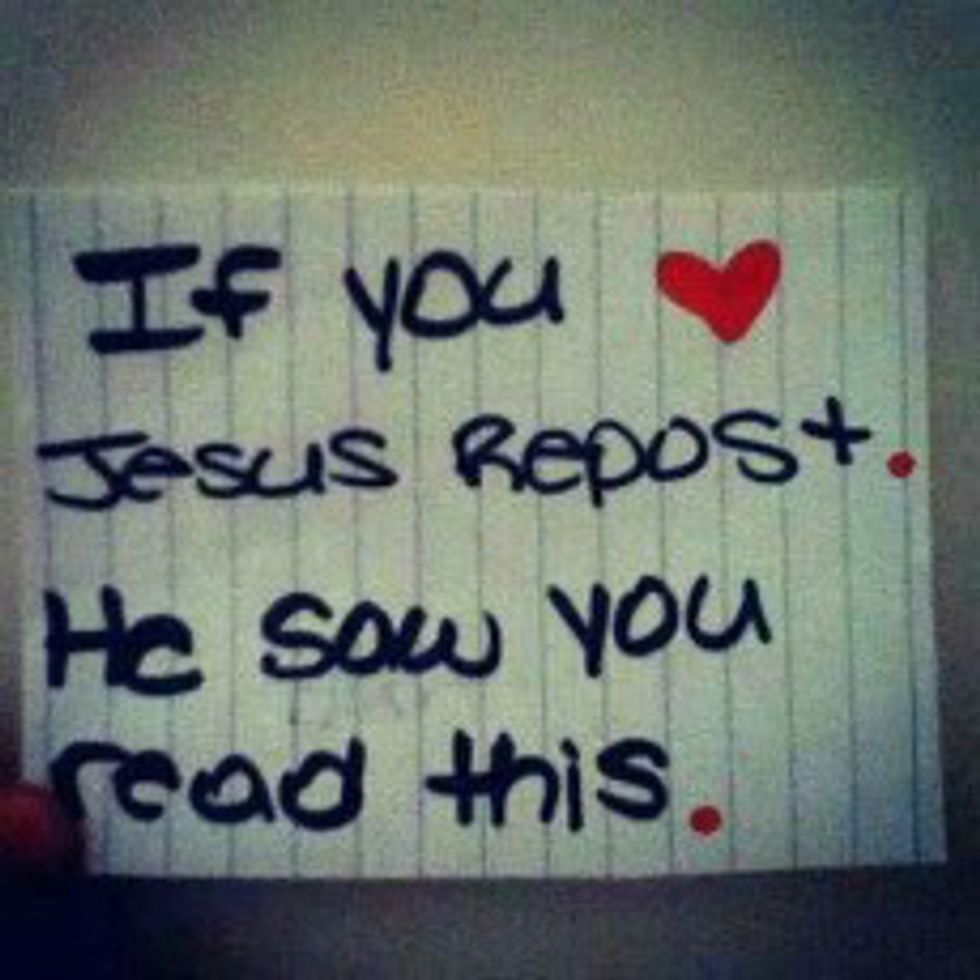 If you ❤
Jesus Repost.
He saw you
read this.